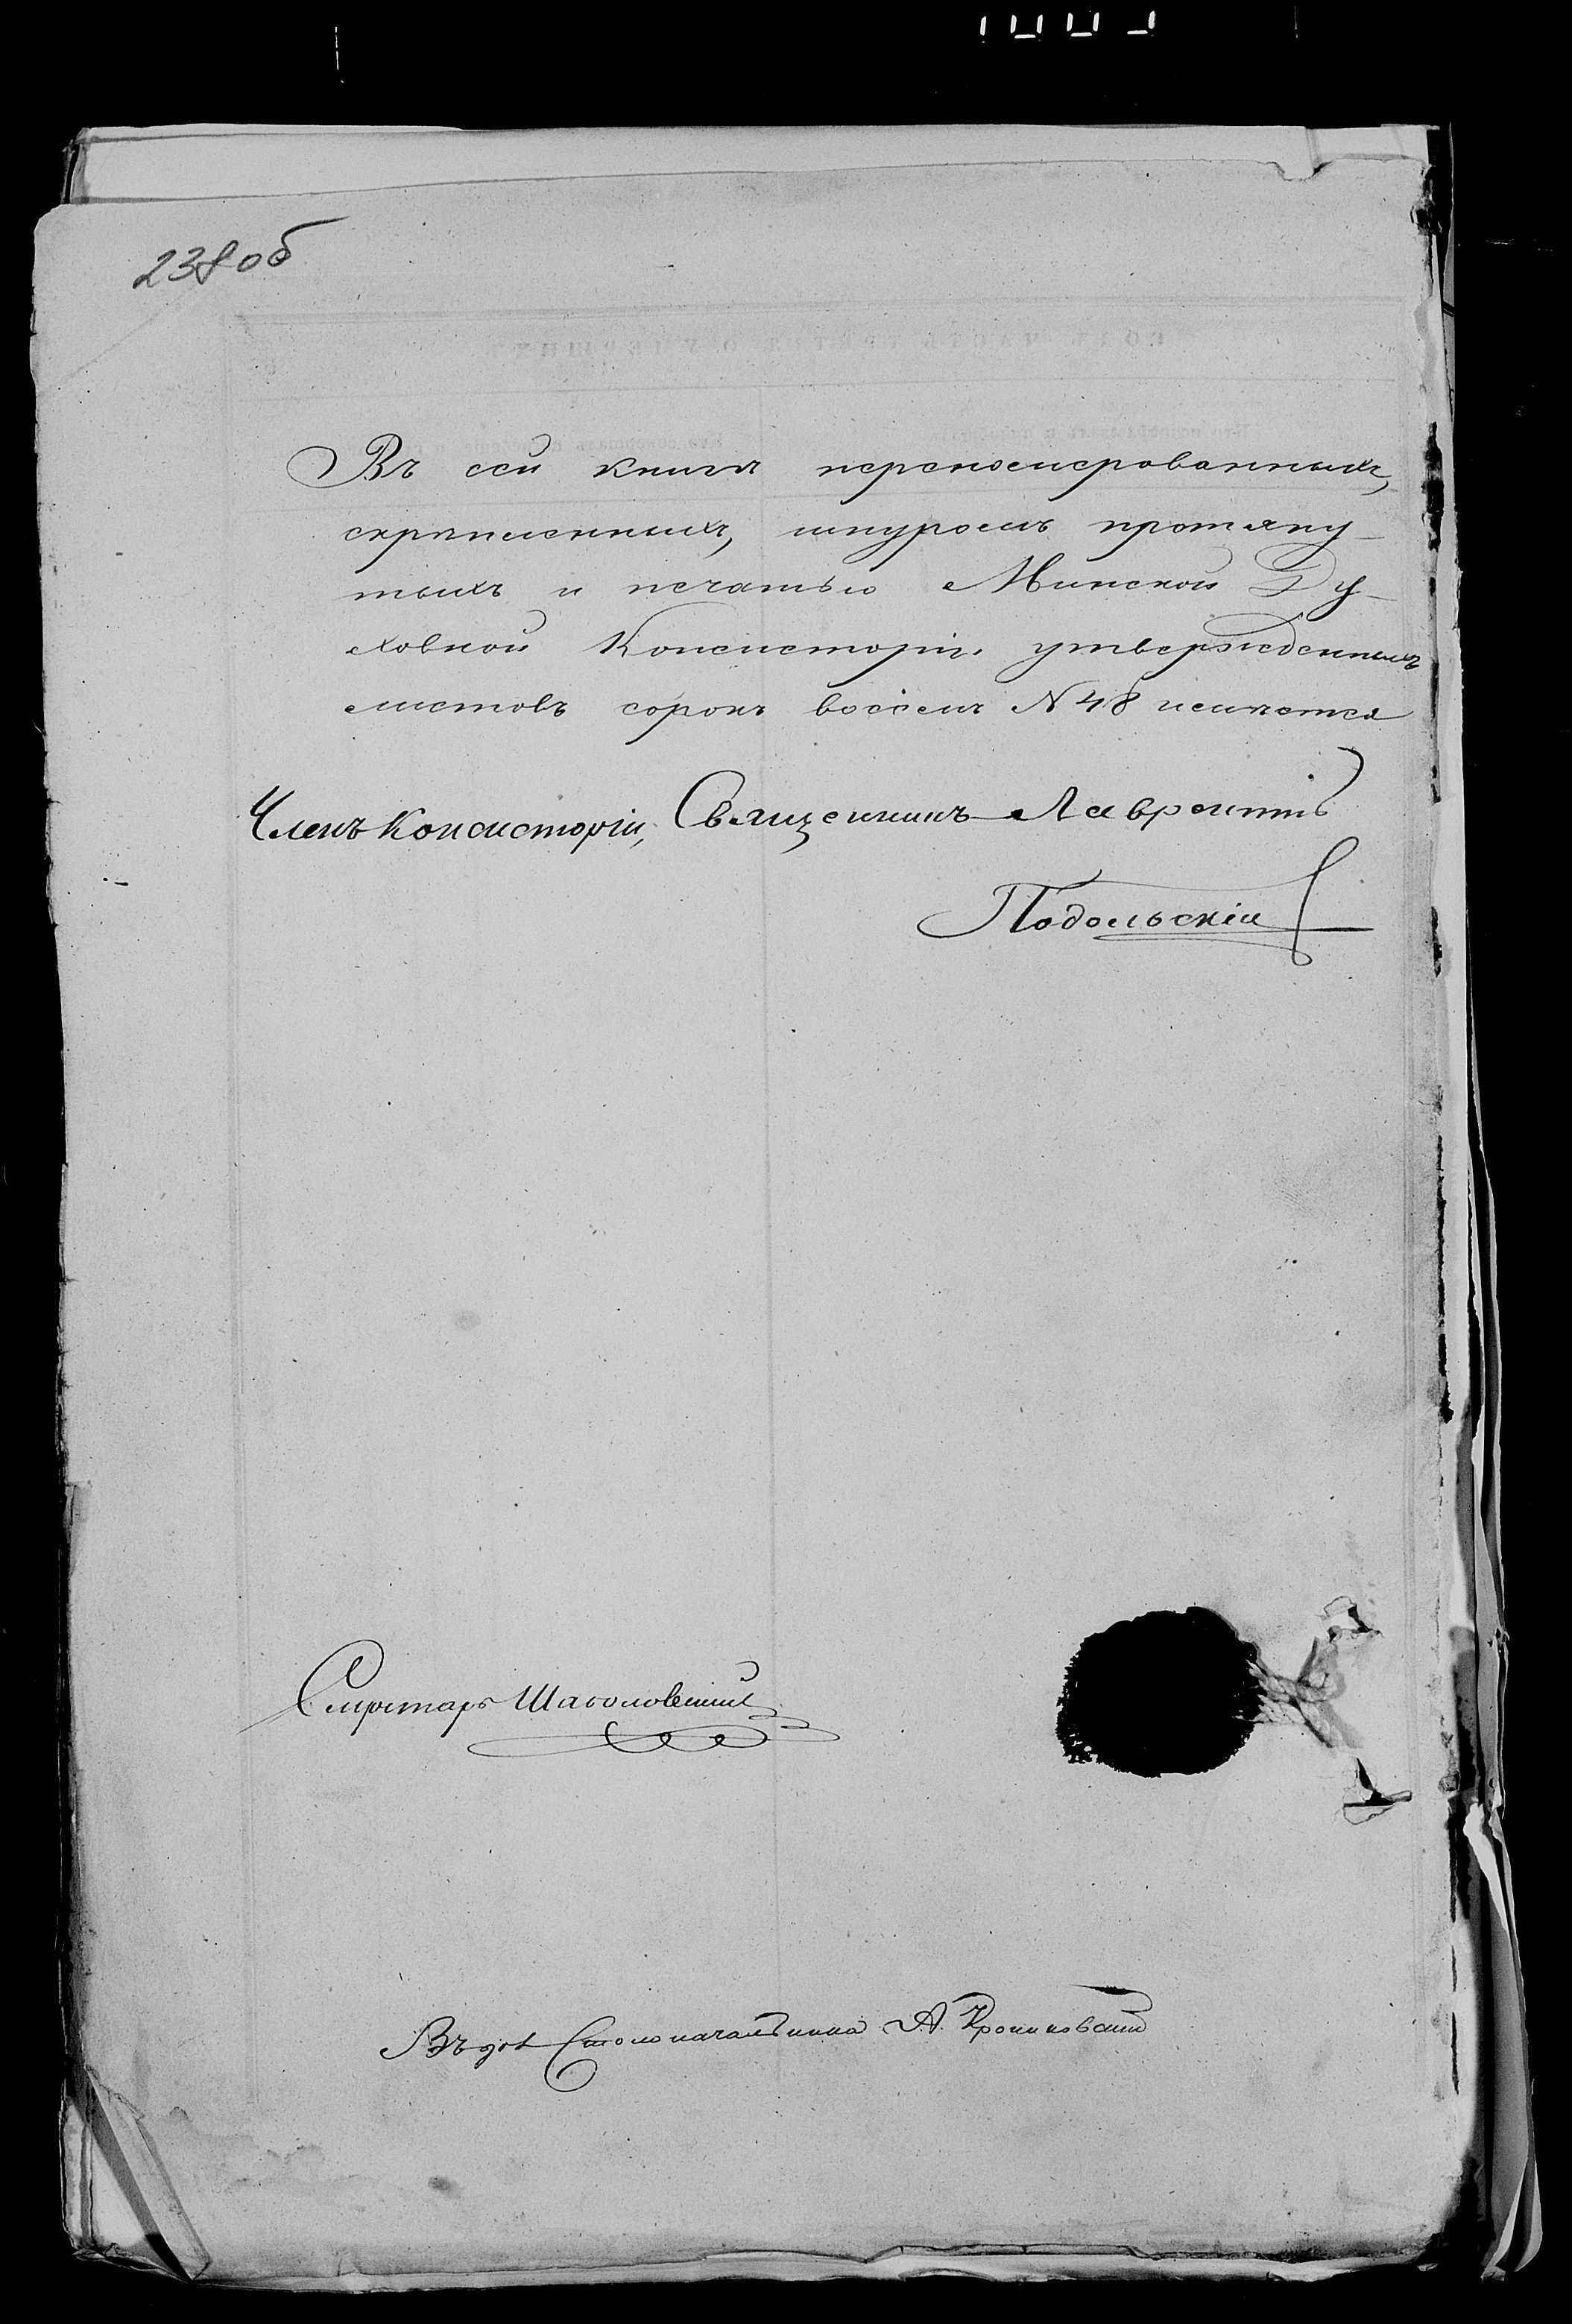 238об
Въ сей книгѣ перенумерованныхъ,
скрѣпленныхъ, шнуромъ протяну-
тыхъ и печатью Минской Ду-
ховной Консисторіи утвержденныхъ
листовъ сорокъ восемь N 48 имѣется
Членъ Консисторіи, Священникъ Лаврентій
Подольскій
Секретарь
Въ дол Столоначальника А.